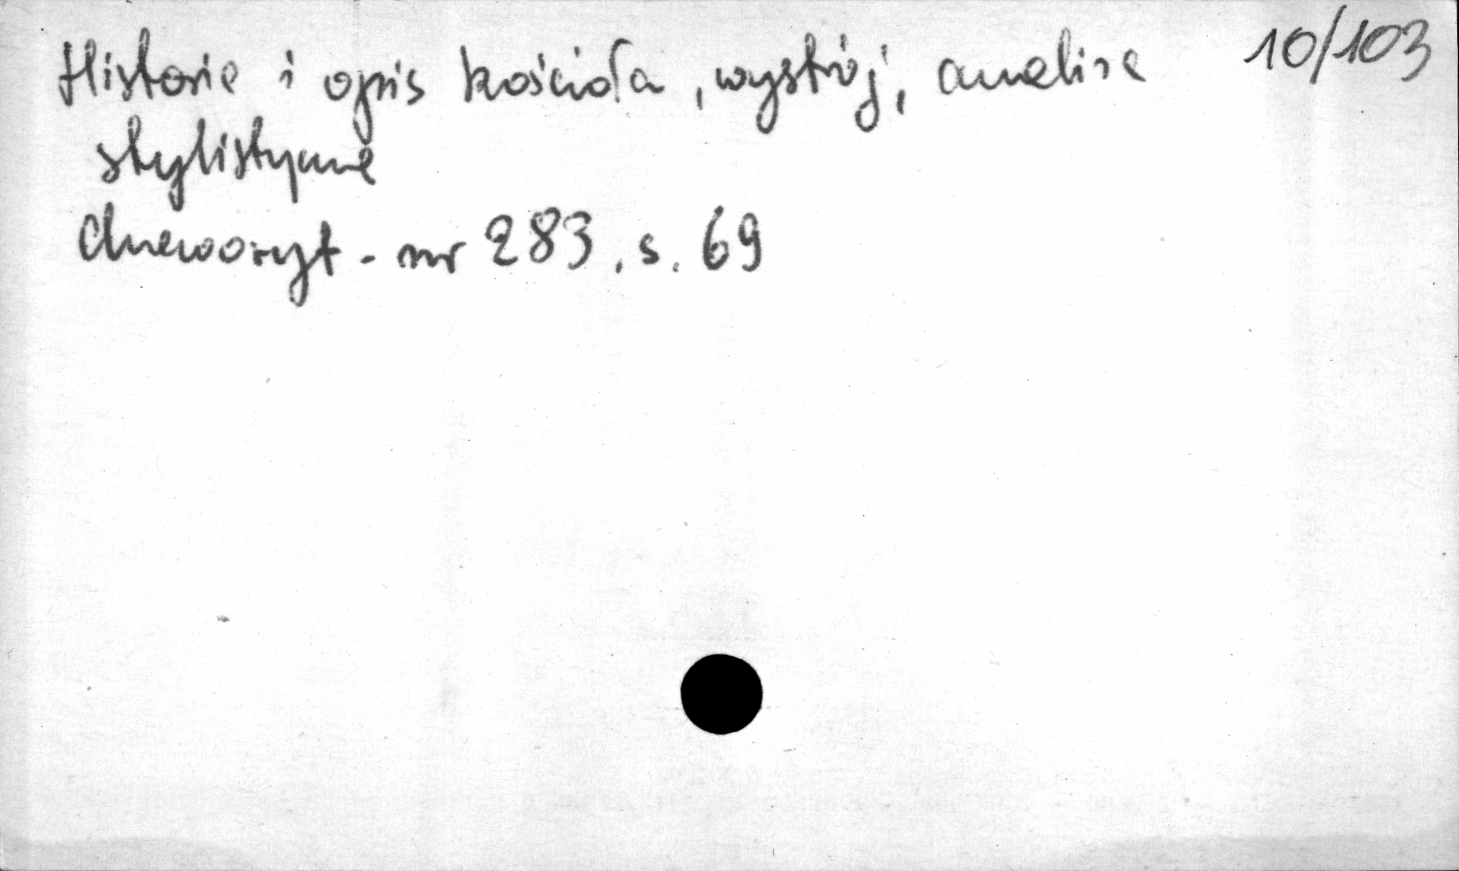 Historia i opis kościoła, wystrój, analiza 10/103
stylistyczna
drzeworyt - nr 283, s. 69